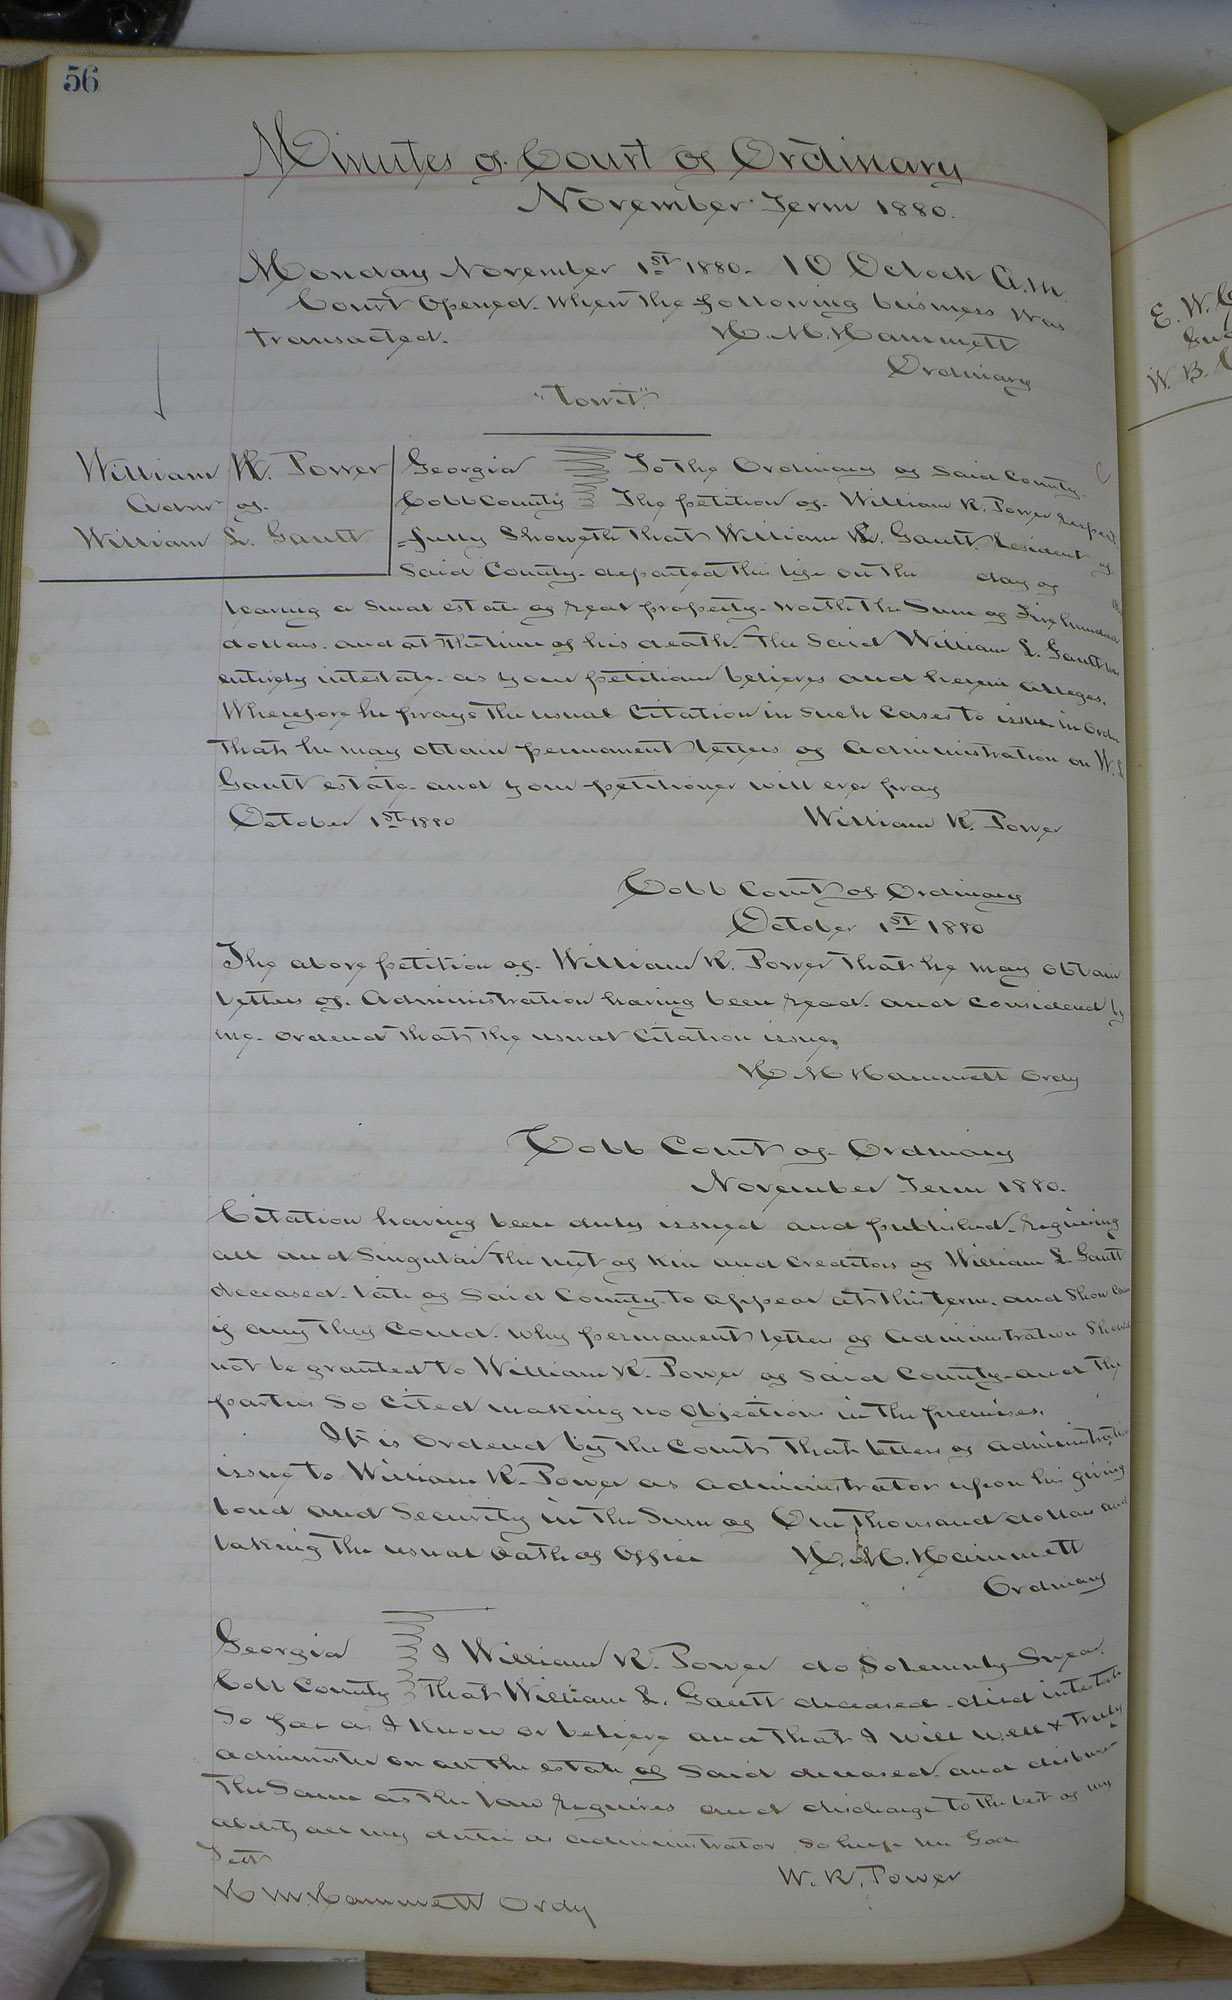 56
Minutes of Court of Ordinary
November Term 1880.
Monday November 1st 1880. 10 Oclock A.M.
Court Opened. When the following business was
transacted. H. M. Hammett
Ordinary
"Towit"
William R. Power
Admr of
William L. Gantt
Georgia To the Ordinary of Said County.
Cobb County The petition of William R. Power respect
=fully Showeth that William L. Gantt. Resident of
Said County. departed this life on the day of
leaving a Small estate of real property. worth the Sum of Five hundred
dollars. and at the time of his death. The Said William L. Gantt was
entirely intestate. as your petitioner believes and herein alleges.
Wherefore he prays the usual Citation in Such Cases to issue in Order
that he may obtain permanent letters of Administration on W. L.
Gantt estate. and your petitioner will ever pray
October 1st 1880 William R. Power
Cobb Court of Ordinary
October 1st 1880
The above petition of. William R. Power that he may obtain
letters of. Administration having been read. and Considered by
me. ordered that the usual Citation issue.
H. M Hammett Ordy
Cobb Court of Ordinary
November Term 1880.
Citation having been duly issued and published. requiring
all and Singular the next of Kin and Creditors of William L. Gantt
deceased. late of Said County. to appear at this term. and Show Cause
if any they Could. why permanent letters of Administration Should
not be granted to William R. Power of Said County. and the
parties So Cited making no Objection in the premises.
It is Ordered by the Court that letters of administration
issue to William R. Power as administrator upon his giving
bond and Security in the Sum of One Thousand dollars and
taking the usual Oath of Office H. M. Hammett
Ordinary
Georgia I William R. Power do Solemnly Swear.
Cobb County That William L. Gantt deceased. died intestate
So far as I know or believe and that I will well & truly
administer on all the estate of Said deceased. and disburse
the Same as the law requires and discharge to the best of my
ability all my duties as administrator So help me God
Test W. R. Power
H M Hammett Ordy
E. W.
W. B.